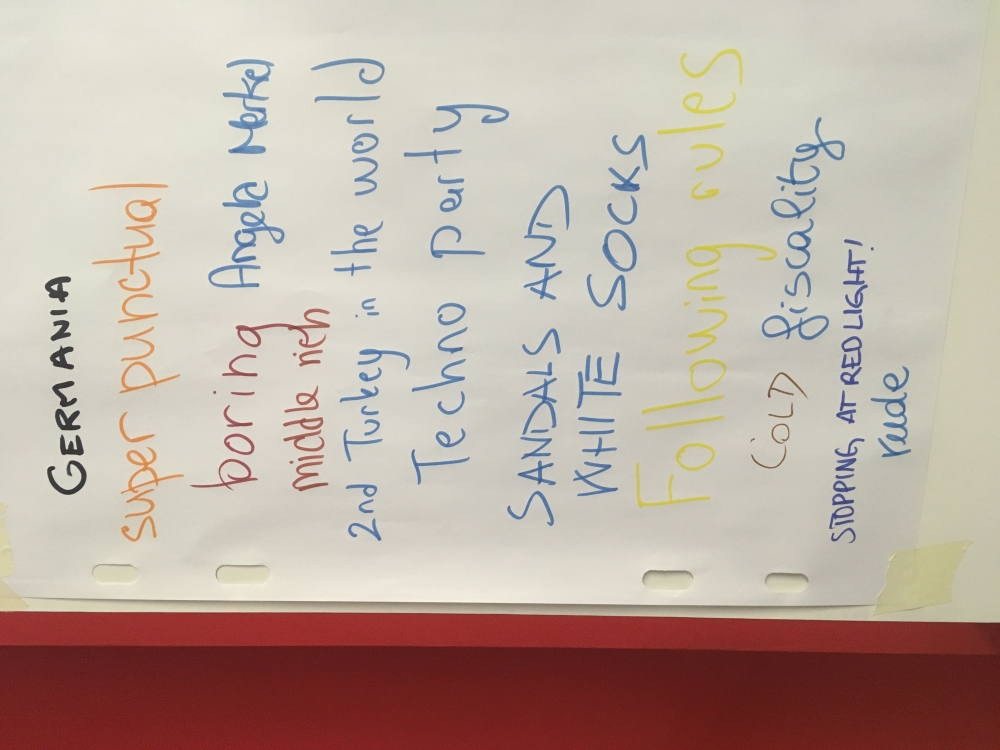 GERMANIA
super punctual
boring Angela Merkel
middle rich
2nd Turkey in the world
Techno party
SANDALS AND
WHITE SOCKS
Following rules
COLD fiscality
STOPPING AT RED LIGHT!
rude